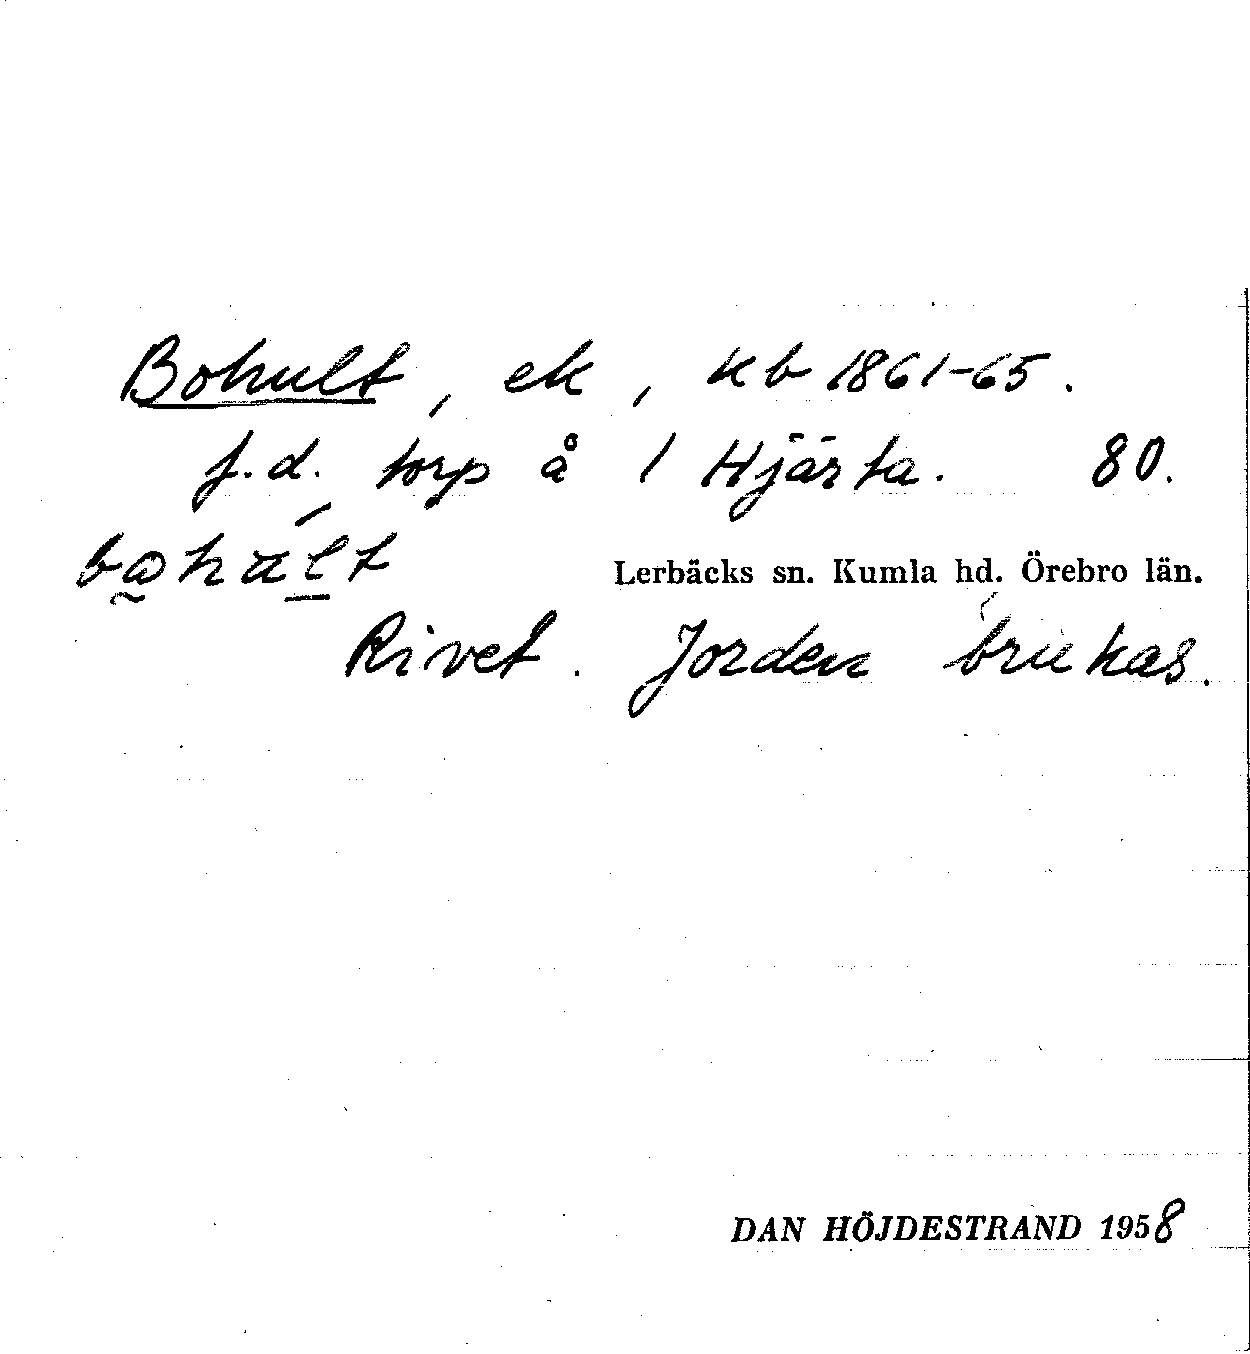 Bohult, ek, kb 1861-65.
f.d. torp å 1 Hjärta. 80.
Lerbäcks sn. Kumla hd. Örebro län.
Rivet. Jorden brukas.
DAN HÖJDESTRAND 1958